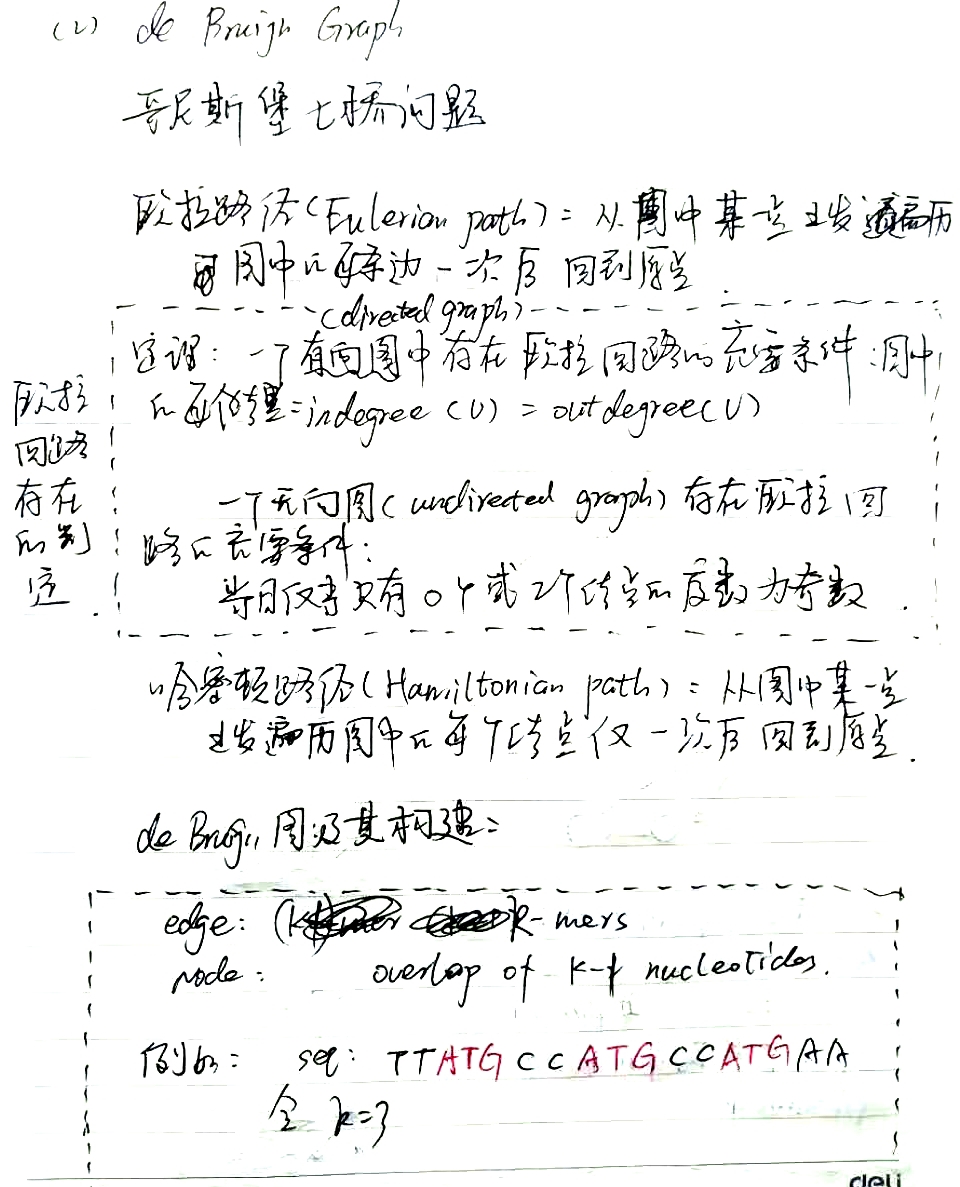 (2) de Bruijn Graph
哥尼斯堡七桥问题
欧拉路径(Eulerian path): 从图中某一点出发遍历
图中的每条边一次后回到原点.
(directed graph)
定理: 一个有向图中存在欧拉回路的充要条件:图中
的每个结点:indegree(v) = outdegree(v)
一个无向图(undirected graph)存在欧拉回
路的充要条件:
当且仅当只有0个或2个结点的度数为奇数.
欧拉
回路
存在
的判
定.
哈密顿路径(Hamiltonian path): 从图中某一点
出发遍历图中的每个结点仅一次后回到原点.
de Bruijn 图及其构建:
edge: k-mers
node: overlap of k-1 nucleotides.
例如: seq: TTATGCCATGCCATGAA
令 k=3
deli